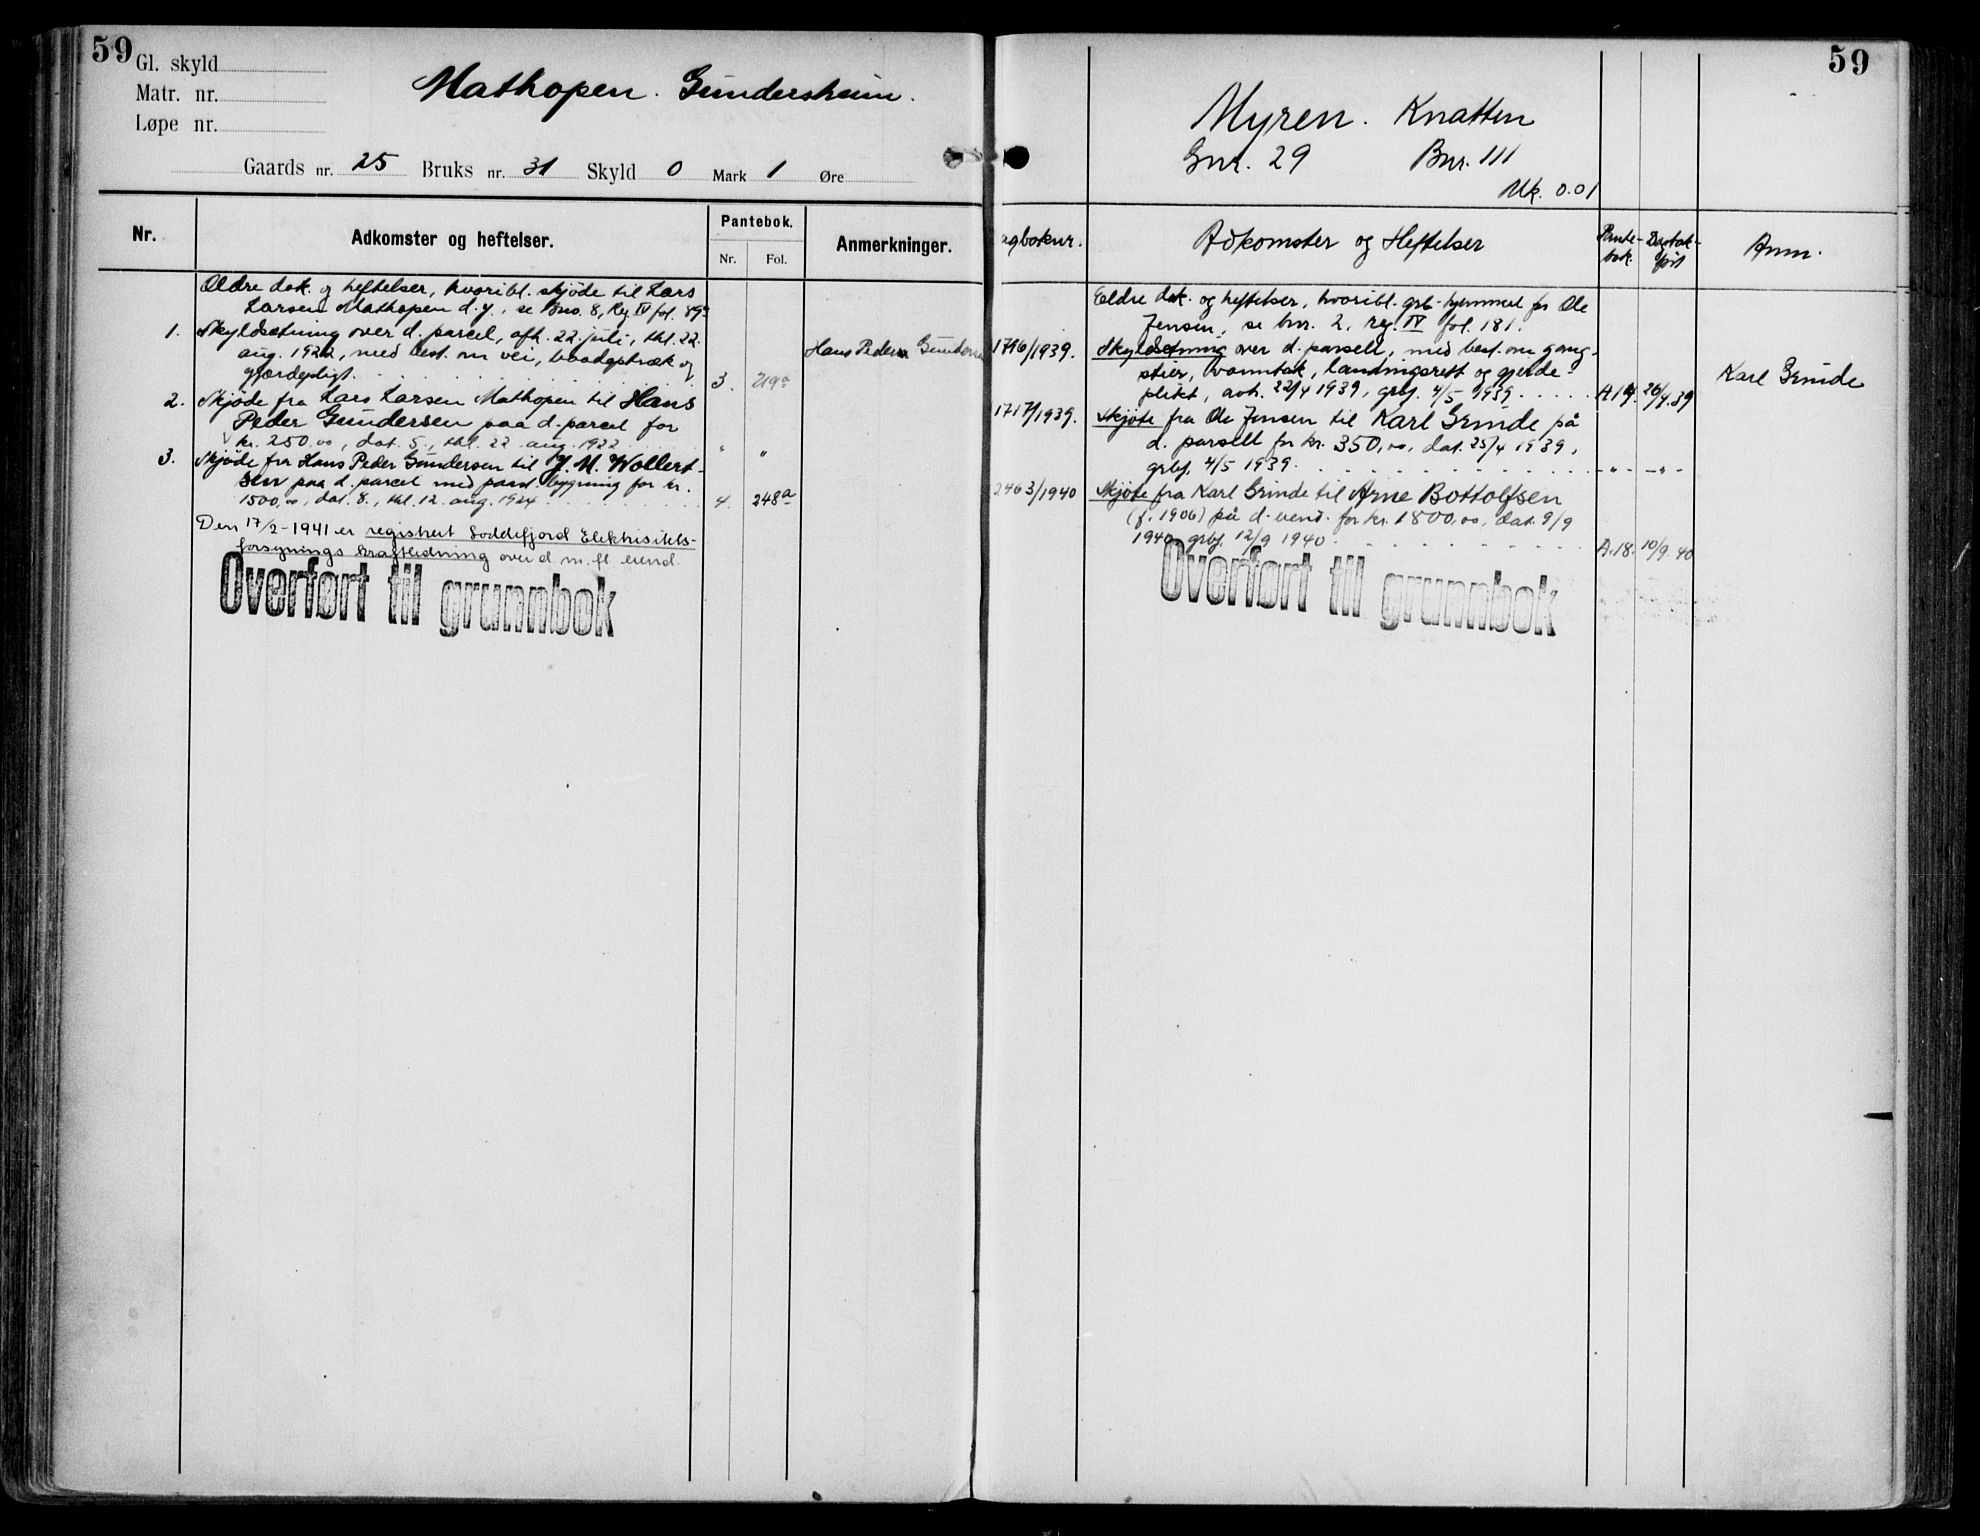 59
Gl. skyld
Matr. nr.
Løpe nr.
Mathopen. Gundersheim.
Gaards nr. 25 Bruks nr. 31 Skyld 0 Mark 1 Øre
Nr.
Adkomster og heftelser.
Pantebok.
Nr. Fol.
Anmerkninger.
Ældre dok. og heftelser, hvoribl. skjøde til Lars
Larsen Mathopen d.y., se Bno. 8, Reg IV fol. 89a
1. Skyldsætning over d. parcel, afh. 22. juli, thl. 22.
aug. 1922, med best. om vei, baadoptræk og
gjærdepligt. 3. 219a
Hans Peder Gundersen
2. Skjøde fra Lars Larsen Mathopen til Hans
Peder Gundersen paa d. parcel for
kr. 250,00, dat. 5., thl. 22 aug. 1922 " "
3. Skjøde fra Hans Peder Gundersen til J. M. Wollert-
sen paa d. parcel med paast. bygning for kr.
1500,00, dat. 8., thl. 12. aug. 1924 4. 248a
Den 17/2-1941 er registrert Loddefjord Elektrisitets-
forsynings kraftledning over d. m. fl. eiend.
Overført til grunnbok
59
Myren. Knatten
Gnr. 29 Bnr. 111
Mk. 0.01
agboknr.
Adkomster og Heftelser
Pante-
bok.
Dagbok-
ført
Anm.
Eldre dok. og heftelser, hvoribl. grb-hjemmel for Ole
Jensen, se bnr. 2, reg. IV fol. 181.
1716/1939. Skyldsetning over d. parsell, med best. om gang-
stier, vanntak, landingsrett og gjerde-
plikt, avh. 22/4 1939, grbf. 4/5 1939 A.14. 26/4.39
Karl Grinde
1717/1939. Skjøte fra Ole Jensen til Karl Grinde på
d. parsell for kr. 350,00, dat. 25/4 1939,
grbf. 4/5 1939. - " - - " -
2463/1940 Skjøte fra Karl Grinde til Arne Bottolfsen
(f. 1906) på d. eiend. for kr. 1800,00, dat. 9/9
1940, grbf. 12/9 1940 A.18. 10/9.40
Overført til grunnbok